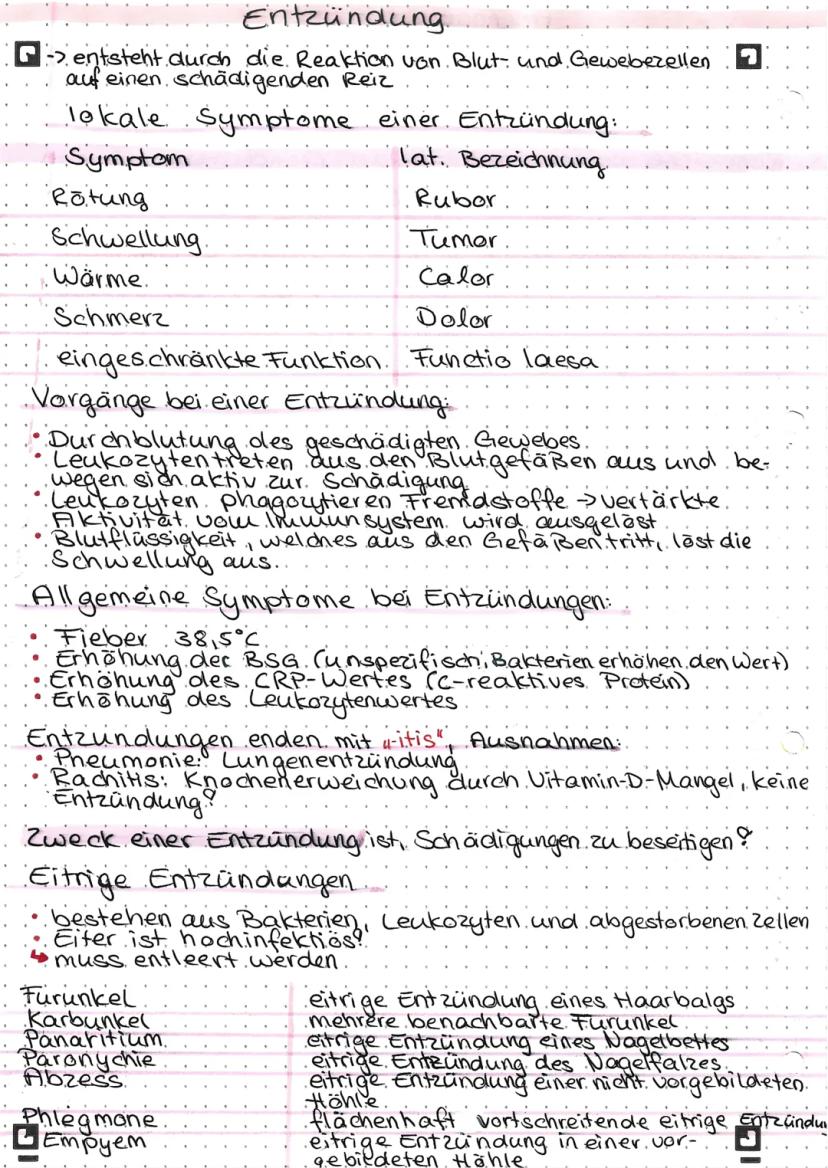 Entzündung
-> entsteht durch die Reaktion von Blut- und Gewebezellen
auf einen schädigenden Reiz
lokale Symptome einer Entzündung:
Symptom lat. Bezeichnung
Rötung Rubor
Schwellung Tumor
Wärme Calor
Schmerz Dolor
eingeschränkte Funktion Functio laesa
Vorgänge bei einer Entzündung:
• Durchblutung des geschädigten Gewebes
• Leukozyten treten aus den Blutgefäßen aus und be-
wegen sich aktiv zur Schädigung
• Leukozyten phagozytieren Fremdstoffe -> vertärkte
Aktivität vom Immunsystem wird ausgelöst
• Blutflüssigkeit, welches aus den Gefäßen tritt, löst die
Schwellung aus.
Allgemeine Symptome bei Entzündungen:
• Fieber 38,5°C
• Erhöhung der BSG (unspezifisch, Bakterien erhöhen den Wert)
• Erhöhung des CRP-Wertes (C-reaktives Protein)
• Erhöhung des Leukozytenwertes
Entzündungen enden mit „-itis“, Ausnahmen:
• Pneumonie: Lungenentzündung
• Rachitis: Knochenerweichung durch Vitamin-D-Mangel, keine
Entzündung!
Zweck einer Entzündung ist, Schädigungen zu beseitigen!
Eitrige Entzündungen
• bestehen aus Bakterien, Leukozyten und abgestorbenen Zellen
• Eiter ist hochinfektiös!
↳ muss entleert werden
Furunkel eitrige Entzündung eines Haarbalgs
Karbunkel mehrere benachbarte Furunkel
Panaritium eitrige Entzündung eines Nagelbettes
Paronychie eitrige Entzündung des Nagelfalzes
Abzess eitrige Entzündung einer nicht vorgebildeten
Höhle
Phlegmone flächenhaft vortschreitende eitrige Entzündu
Empyem eitrige Entzündung in einer vor-
gebildeten Höhle